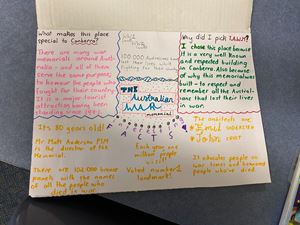 What makes this place
special to Canberra?
There are many war
memorials around Aust-
ralia and all of them
serve the same purpose,
to honour the people who
fought for their country.
It is a major tourist
attraction being been
standing since
100,000 Australians have
lost their lives while
fighting for their
THE
Australian
WAR
memorial
Why did I pick this?
I chose this place because
it is a very well known
and respected building
in Canberra. Also because
of why this memorial was
built - to honour and re-
member all the Australi-
ans that lost their lives
in war.
FACTS
It's 80 years old!
Mr Matt Anderson PSM
is the director of the
Memorial.
There are 102,000 bronze
panels with the names
of all the people who
died in war.
Each year one
million people
visit!
Voted number 1
landmark!
The architects are
Emil Sodersten
John Crust
It educates people on
war times and honours
people who've died.